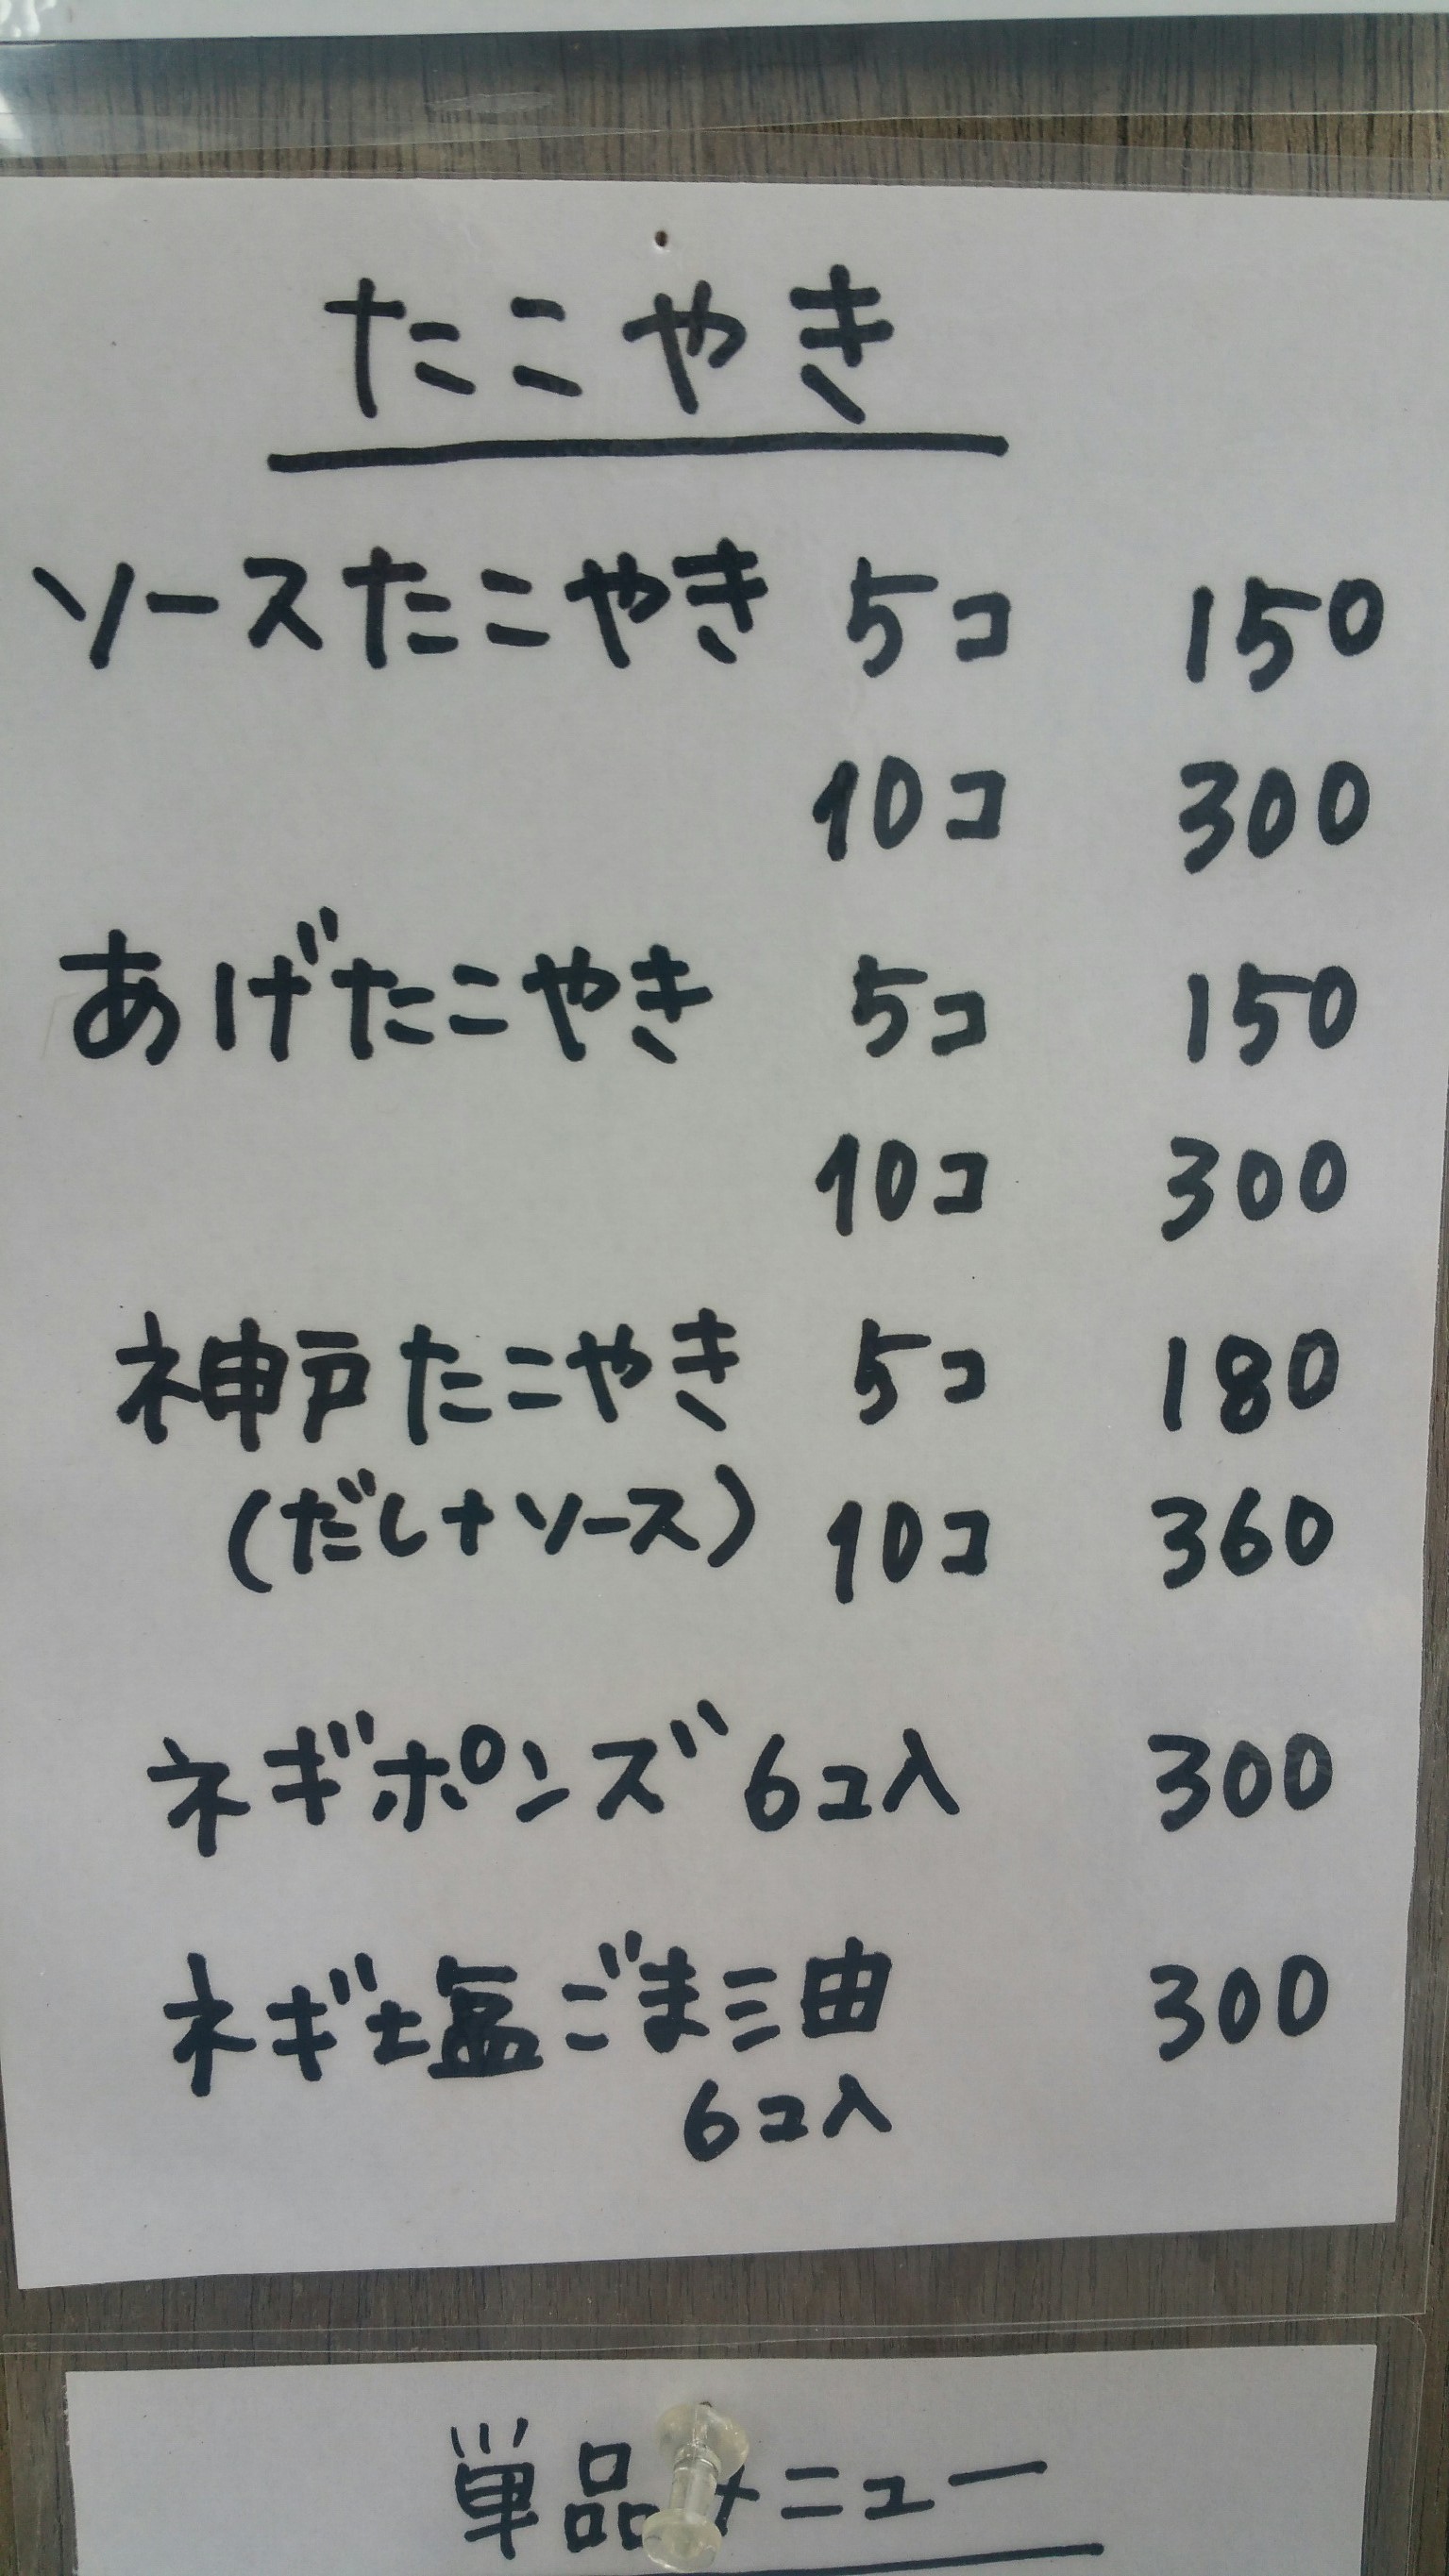 たこやき
ソースたこやき 5コ 150
10コ 300
あげたこやき 5コ 150
10コ 300
神戸たこやき 5コ 180
(だし+ソース) 10コ 360
ネギポンズ 6コ入 300
ネギ塩ごま油 300
6コ入
単品メニュー